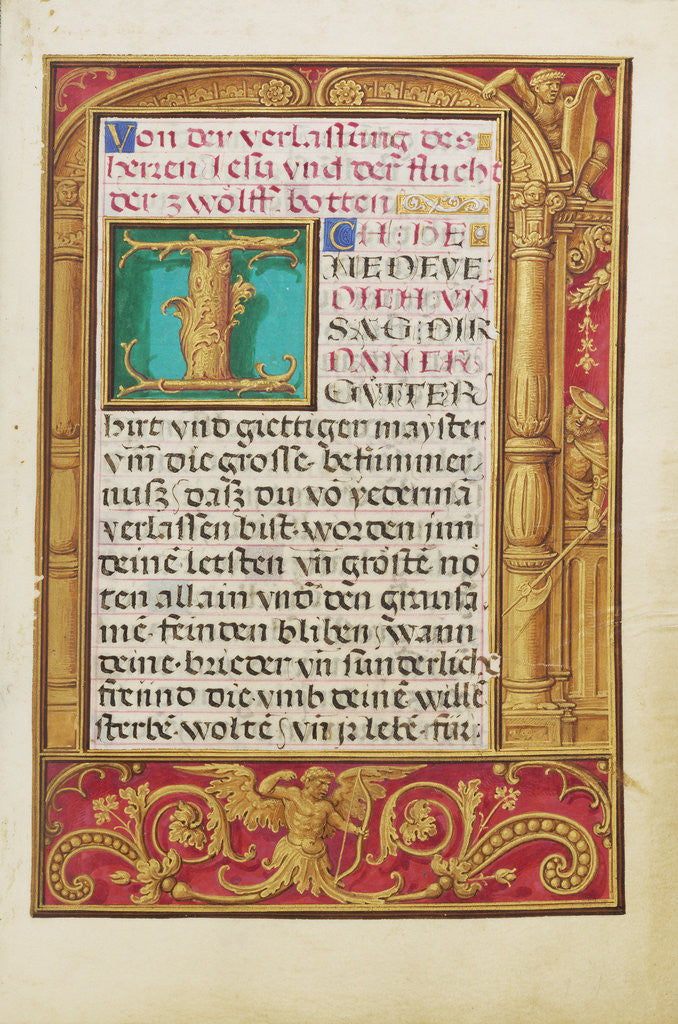 Von der verlassung des
herren Jesu vnd der flucht
der zwölff botten
I CH: IDE
NEDEVE
DICH VN̄
SAG DIR
DANKER
GVTTER
hirt vnd giettiger mayster
vm̄ die grosse bekummer,
nusz, dasz du vō yedermā
verlassen bist worden jnn
deinē letsten vn̄ grostē nō
ten allain vnd̄ den grausa
mē feinden bliben, wann
deine brieder vn̄ sunderliche
freund die vmb deinē willē
sterbē woltē, vn̄ jr lebē für